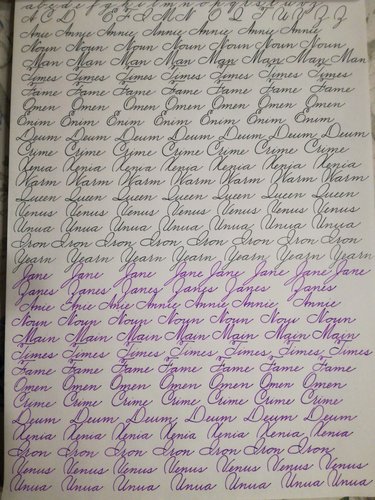 a b c d e f g h i j k l m n o p q r s t u v
A C D E F I M N O Q T U V Y Z
Anie Annie Annie Annie Annie Annie Annie
Noun Noun Noun Noun Noun Noun Noun
Man Man Man Man Man Man Man Man
Times Times Times Times Times Times Times
Fame Fame Fame Fame Fame Fame Fame
Omen Omen Omen Omen Omen Omen Omen
Enim Enim Enim Enim Enim Enim Enim
Deum Deum Deum Deum Deum Deum Deum
Crime Crime Crime Crime Crime Crime Crime
Xenia Xenia Xenia Xenia Xenia Xenia Xenia
Warm Warm Warm Warm Warm Warm Warm
Queen Queen Queen Queen Queen Queen Queen
Venus Venus Venus Venus Venus Venus Venus
Unua Unua Unua Unua Unua Unua Unua
Iron Iron Iron Iron Iron Iron Iron Iron
Yearn Yearn Yearn Yearn Yearn Yearn Yearn
Jane Jane Jane Jane Jane Jane Jane Jane
Janes Janes Janes Janes Janes Janes
Anie Enie Anie Annie Annie Annie Annie
Noun Noun Noun Noun Noun Noun Noun
Main Main Main Main Main Main Main
Times Times Times Times Times Times Times
Fame Fame Fame Fame Fame Fame Fame
Omen Omen Omen Omen Omen Omen Omen
Crime Crime Crime Crime Crime Crime Crime
Deum Deum Deum Deum Deum Deum
Xenia Xenia Xenia Xenia Xenia Xenia Xenia
Iron Iron Iron Iron Iron Iron Iron
Venus Venus Venus Venus Venus Venus Venus
Unua Unua Unua Unua Unua Unua Unua